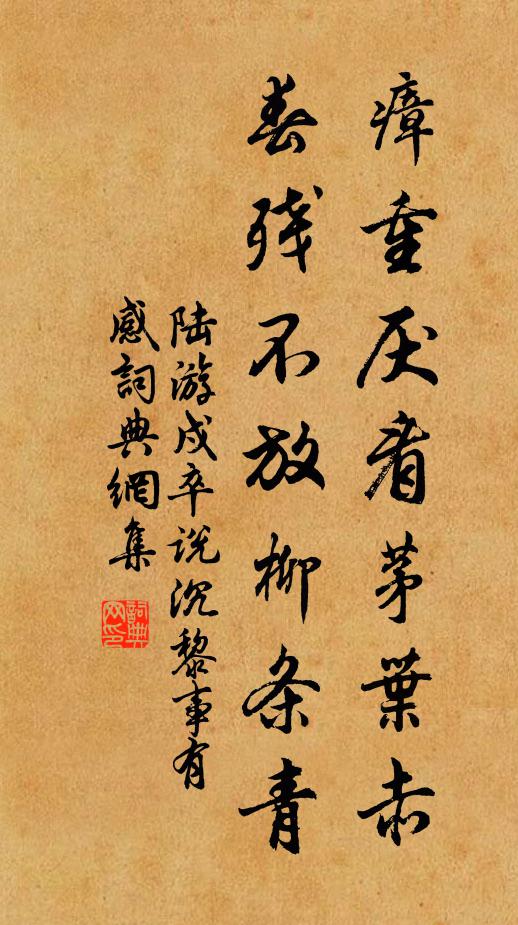 瘴重厌看茅葉赤
春残不放柳条青
陆游戍卒说沉黎事有
感詞典網集
詞典网印